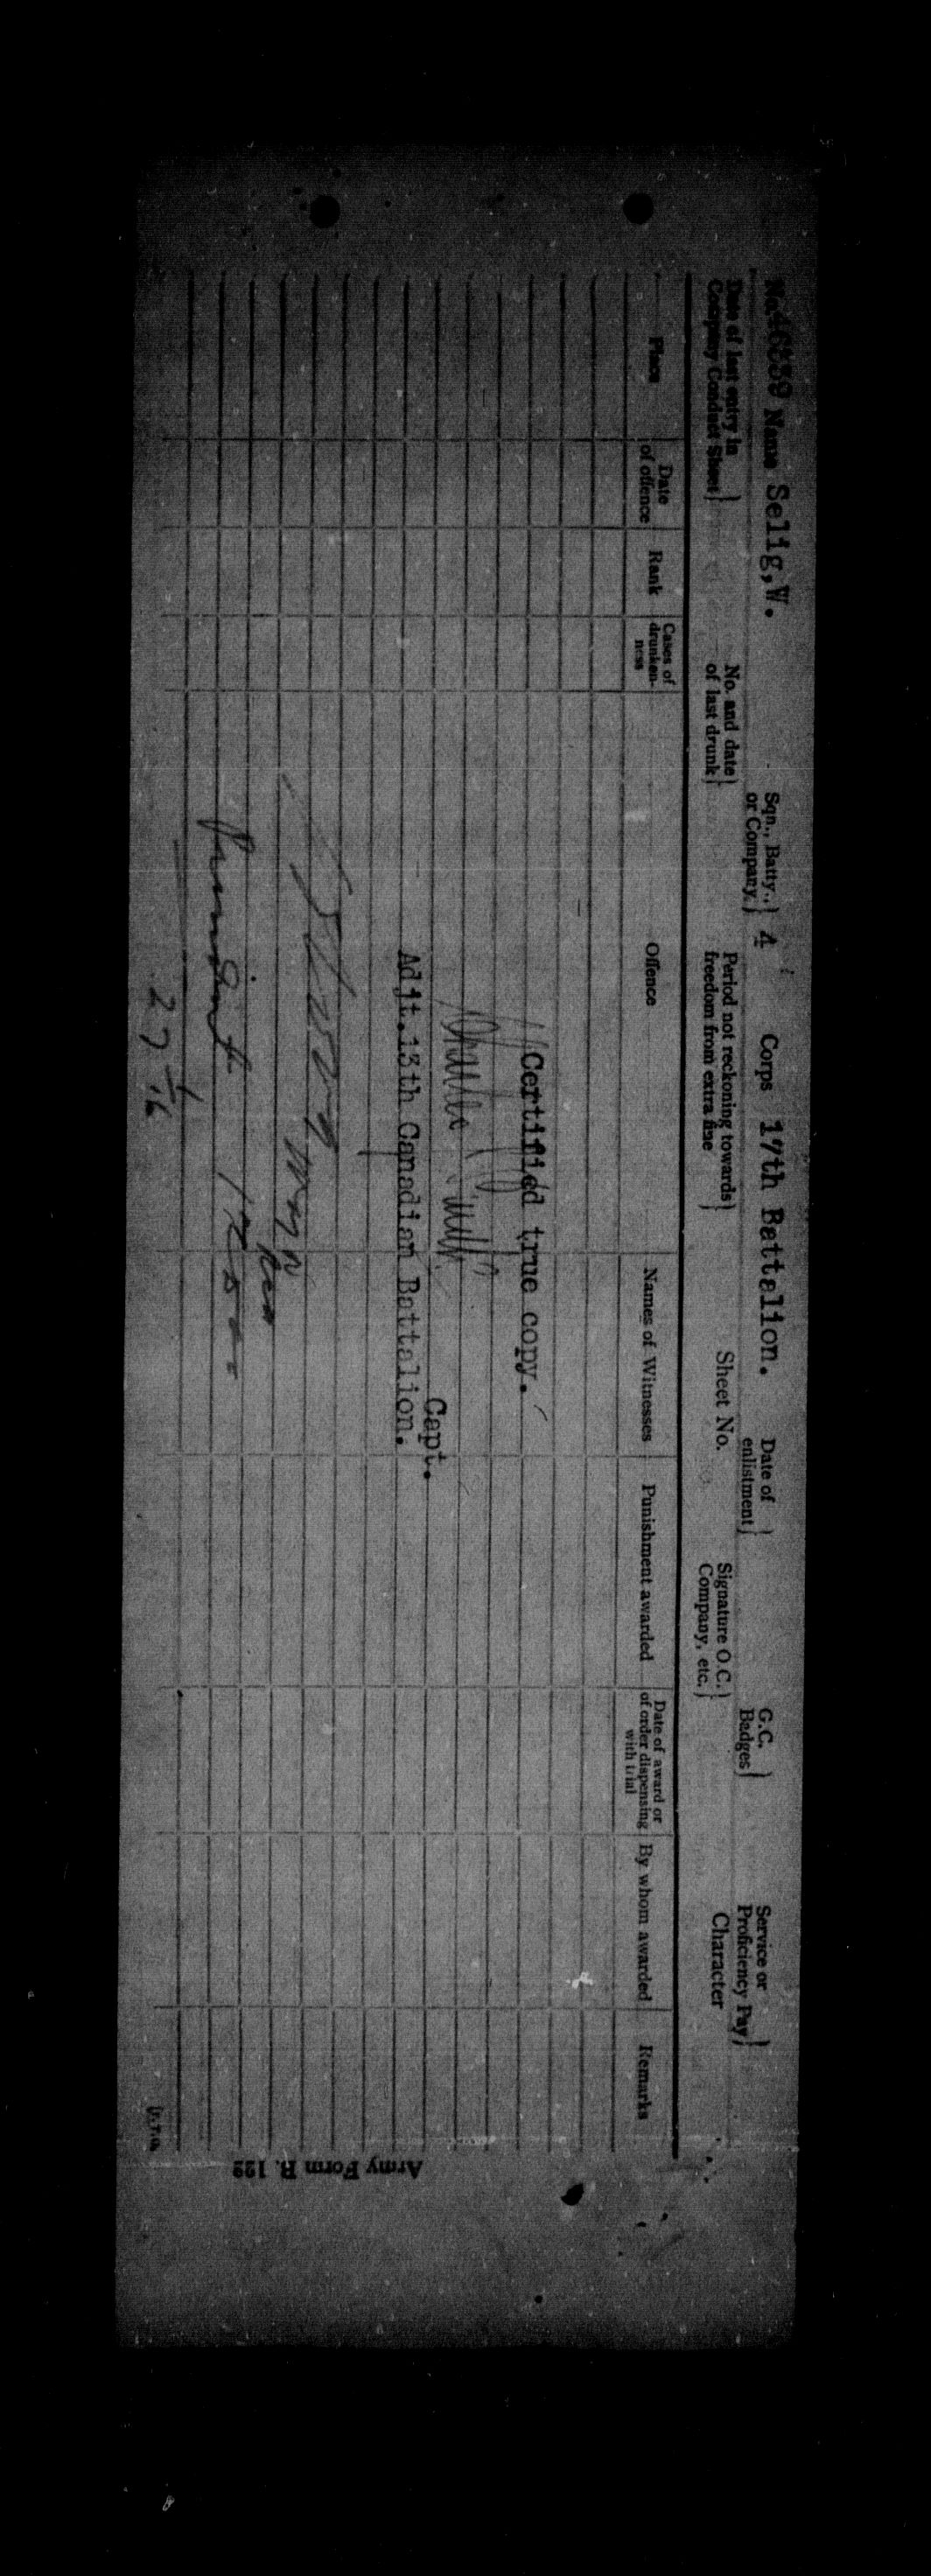 No. 46839 Name Selig,W. Sqn., Batty., or Company.} A Corps 17th Battalion. Date of enlistment} G.C. Badges} Service or Proficiency Pay}
Date of last entry in Company Conduct Sheet} No. and date of last drunk} Period not reckoning towards freedom from extra fine} Sheet No. Signature O.C. Company, etc.} Character
Place Date of offence Rank Cases of drunken-ness Offence Names of Witnesses Punishment awarded Date of award or of order dispensing with trial By whom awarded Remarks
Certified true copy.
Capt.
Adjt.13th Canadian Battalion.
President
27
Army Form B. 122